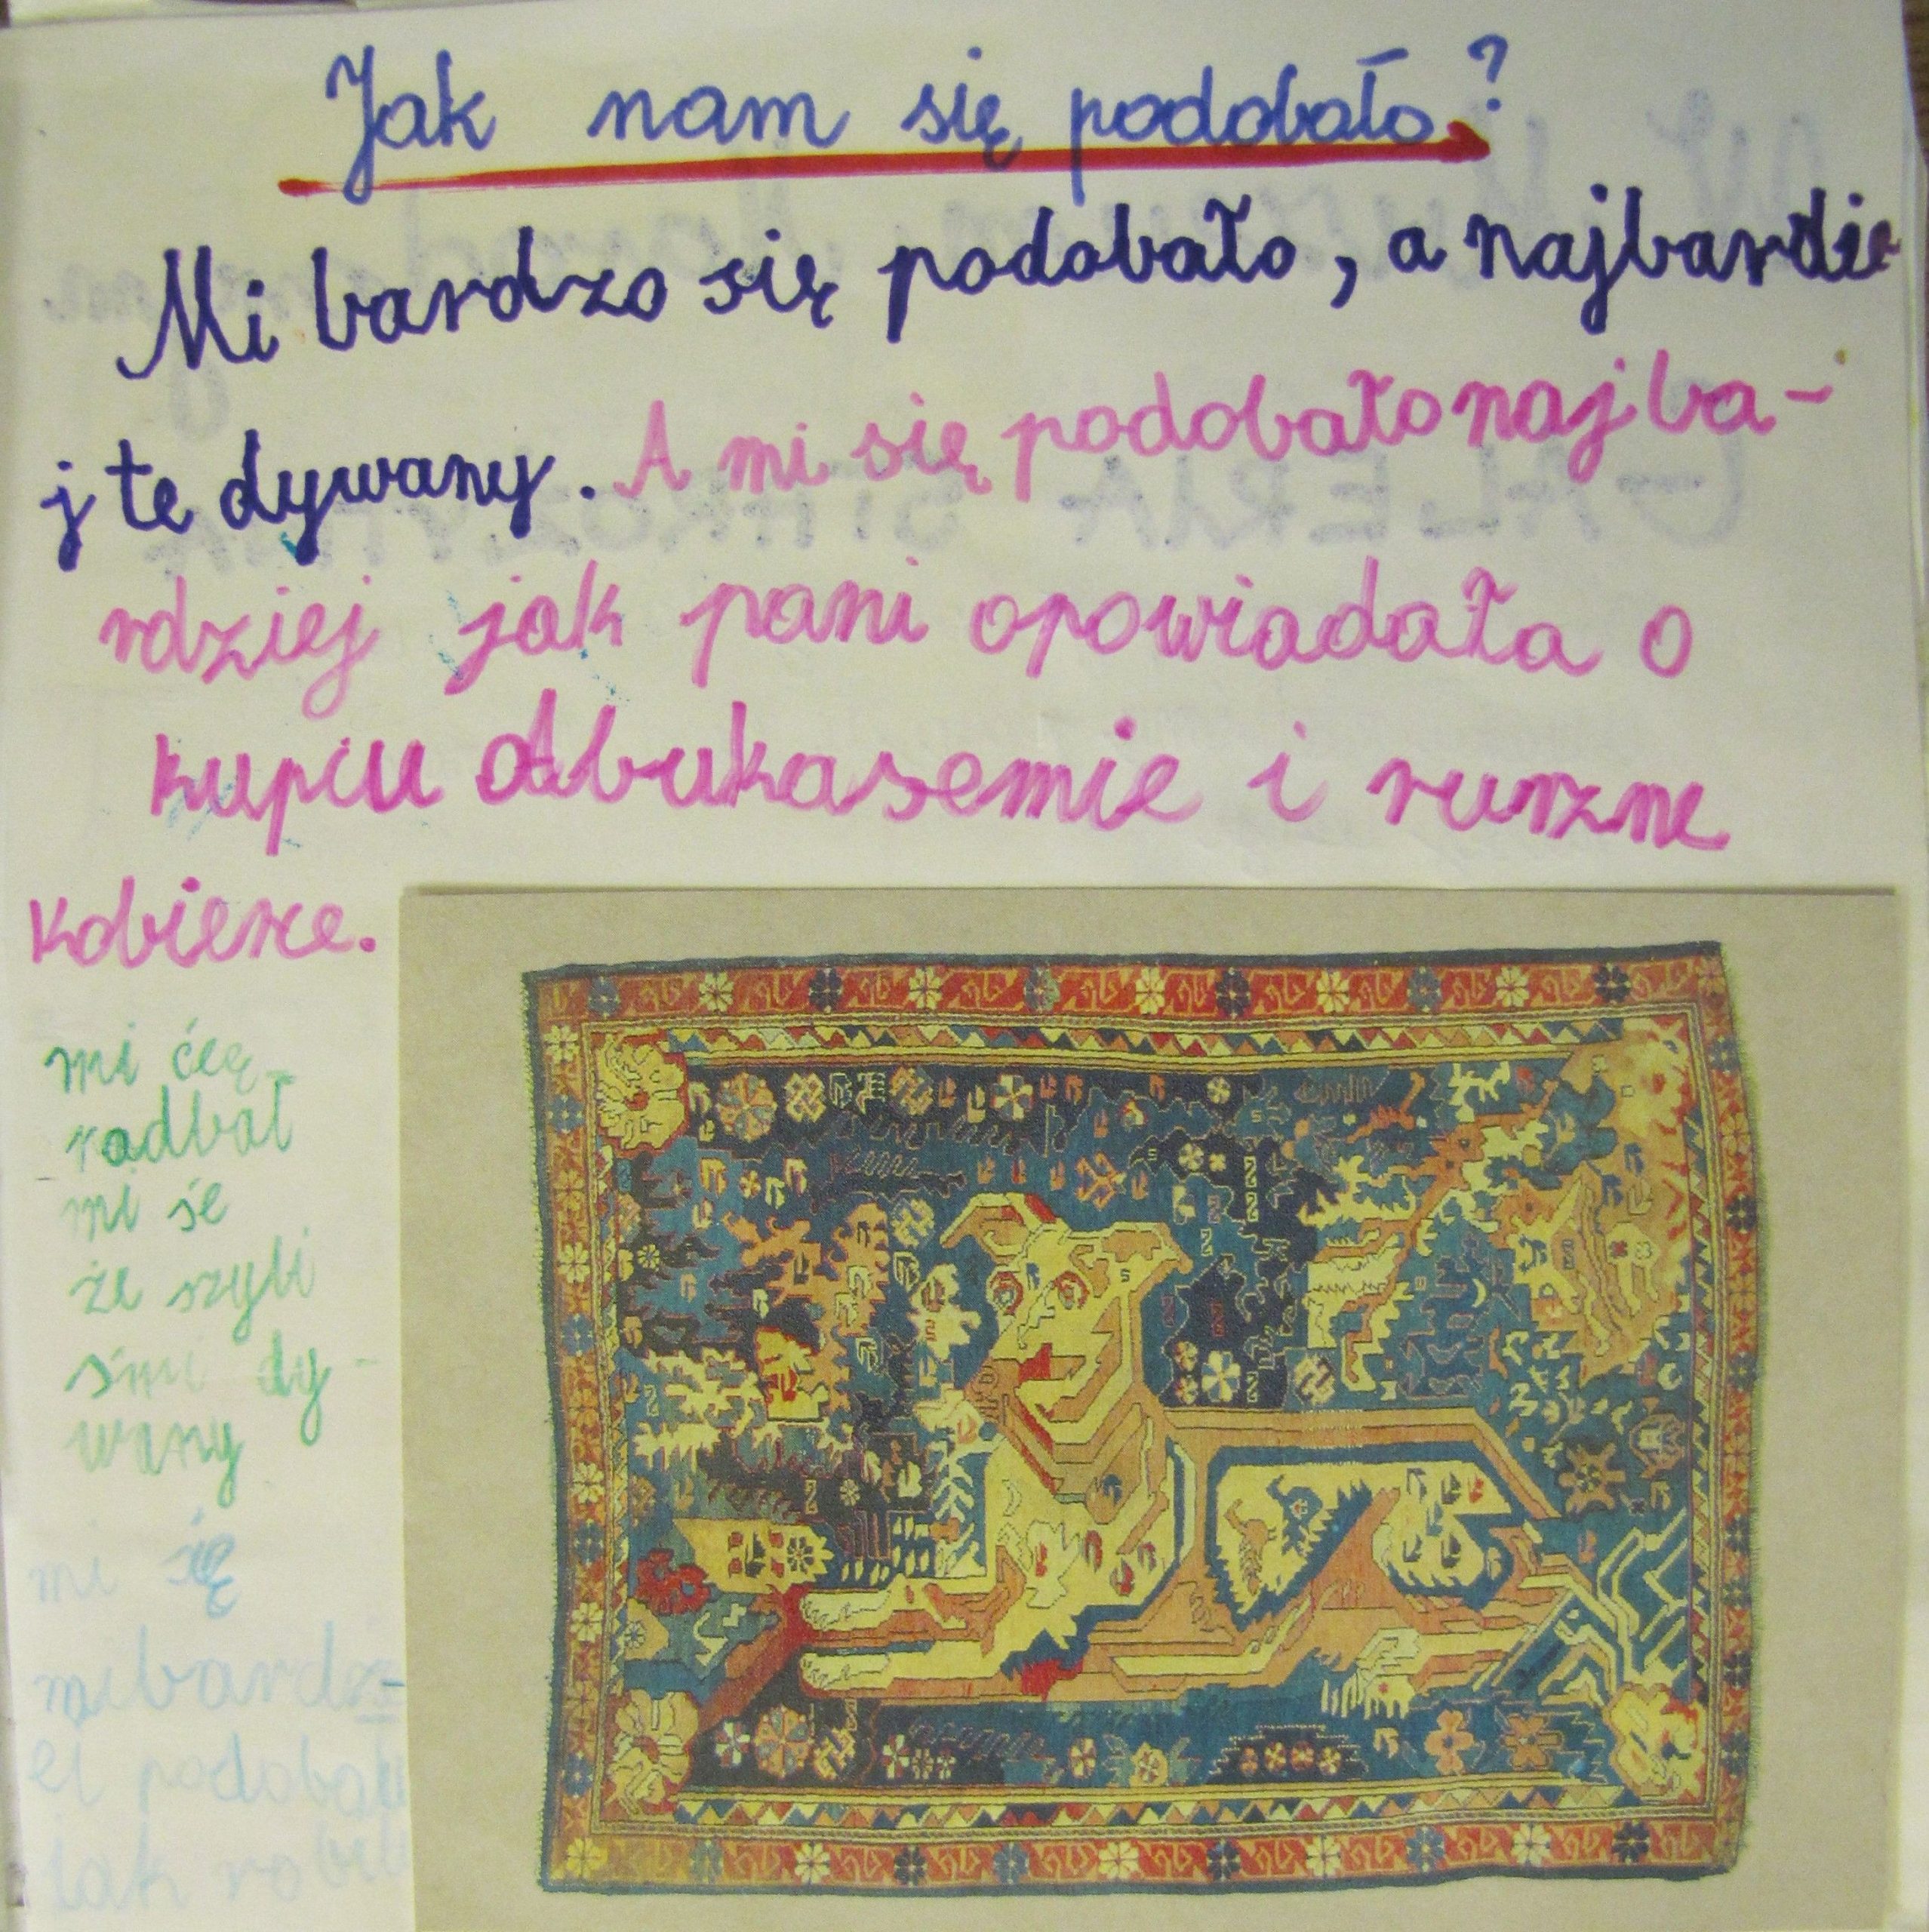 Jak nam się podobało?
Mi bardzo się podobało, a najbardzie
j te dywany. A mi się podobało najba-
rdziej jak pani opowiadała o
kupcu Abukasemie i rurzne
kobierce.
mi ćię
radbał
mi śe
że szyli
śmi dy-
wany
mi się
mi bardz-
ei podobału
jak robili